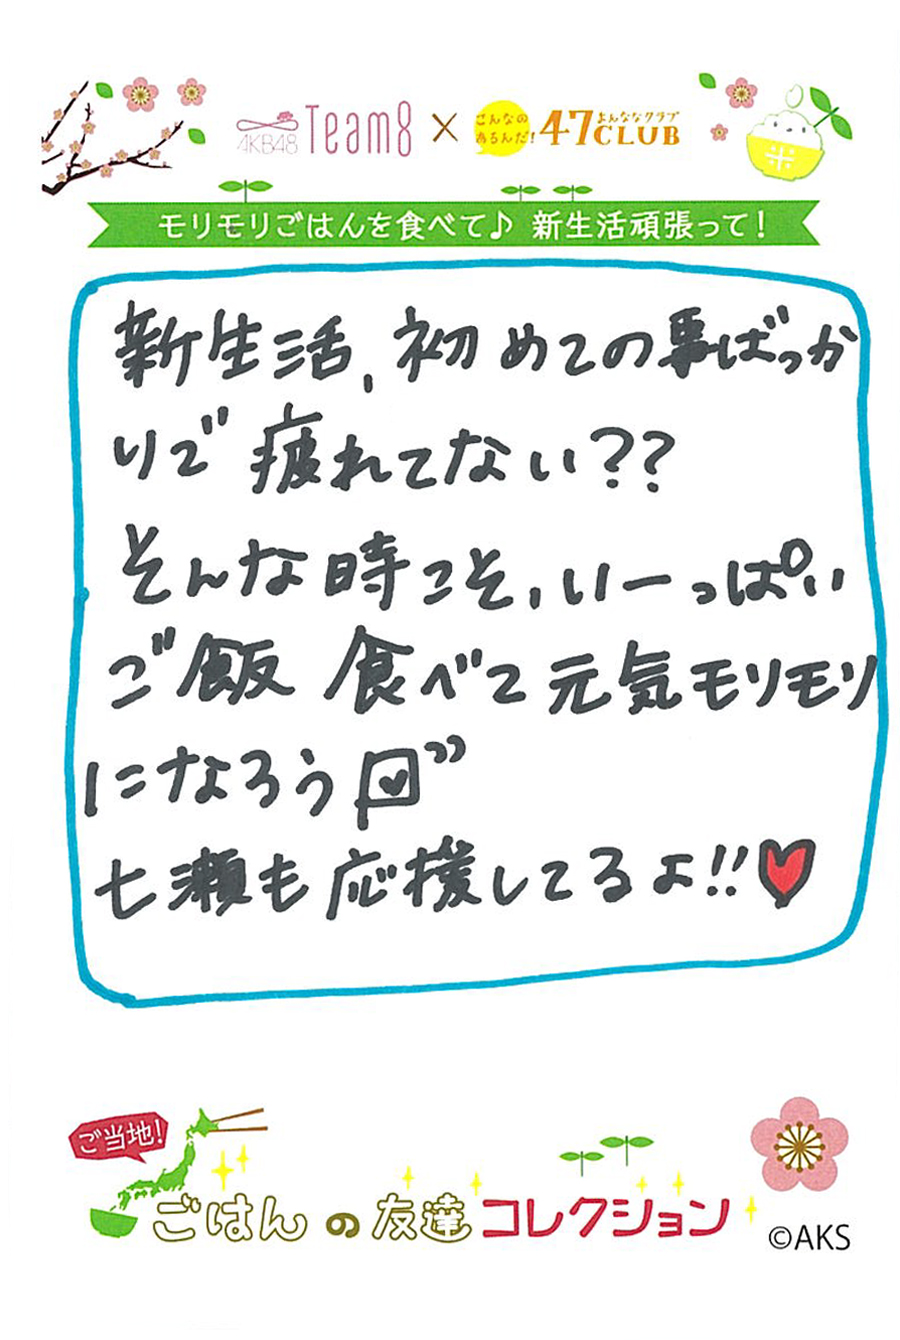 AKB48 Team8 × こんなのあるんだ! 47CLUB よんななクラブ
モリモリごはんを食べて♪ 新生活頑張って!
新生活、初めての事ばっか
りで疲れてない??
そんな時こそ、いーっぱい
ご飯 食べて元気モリモリ
になろう
七瀬も応援してるよ!!♥
ご当地!
ごはんの友達コレクション
©AKS
米